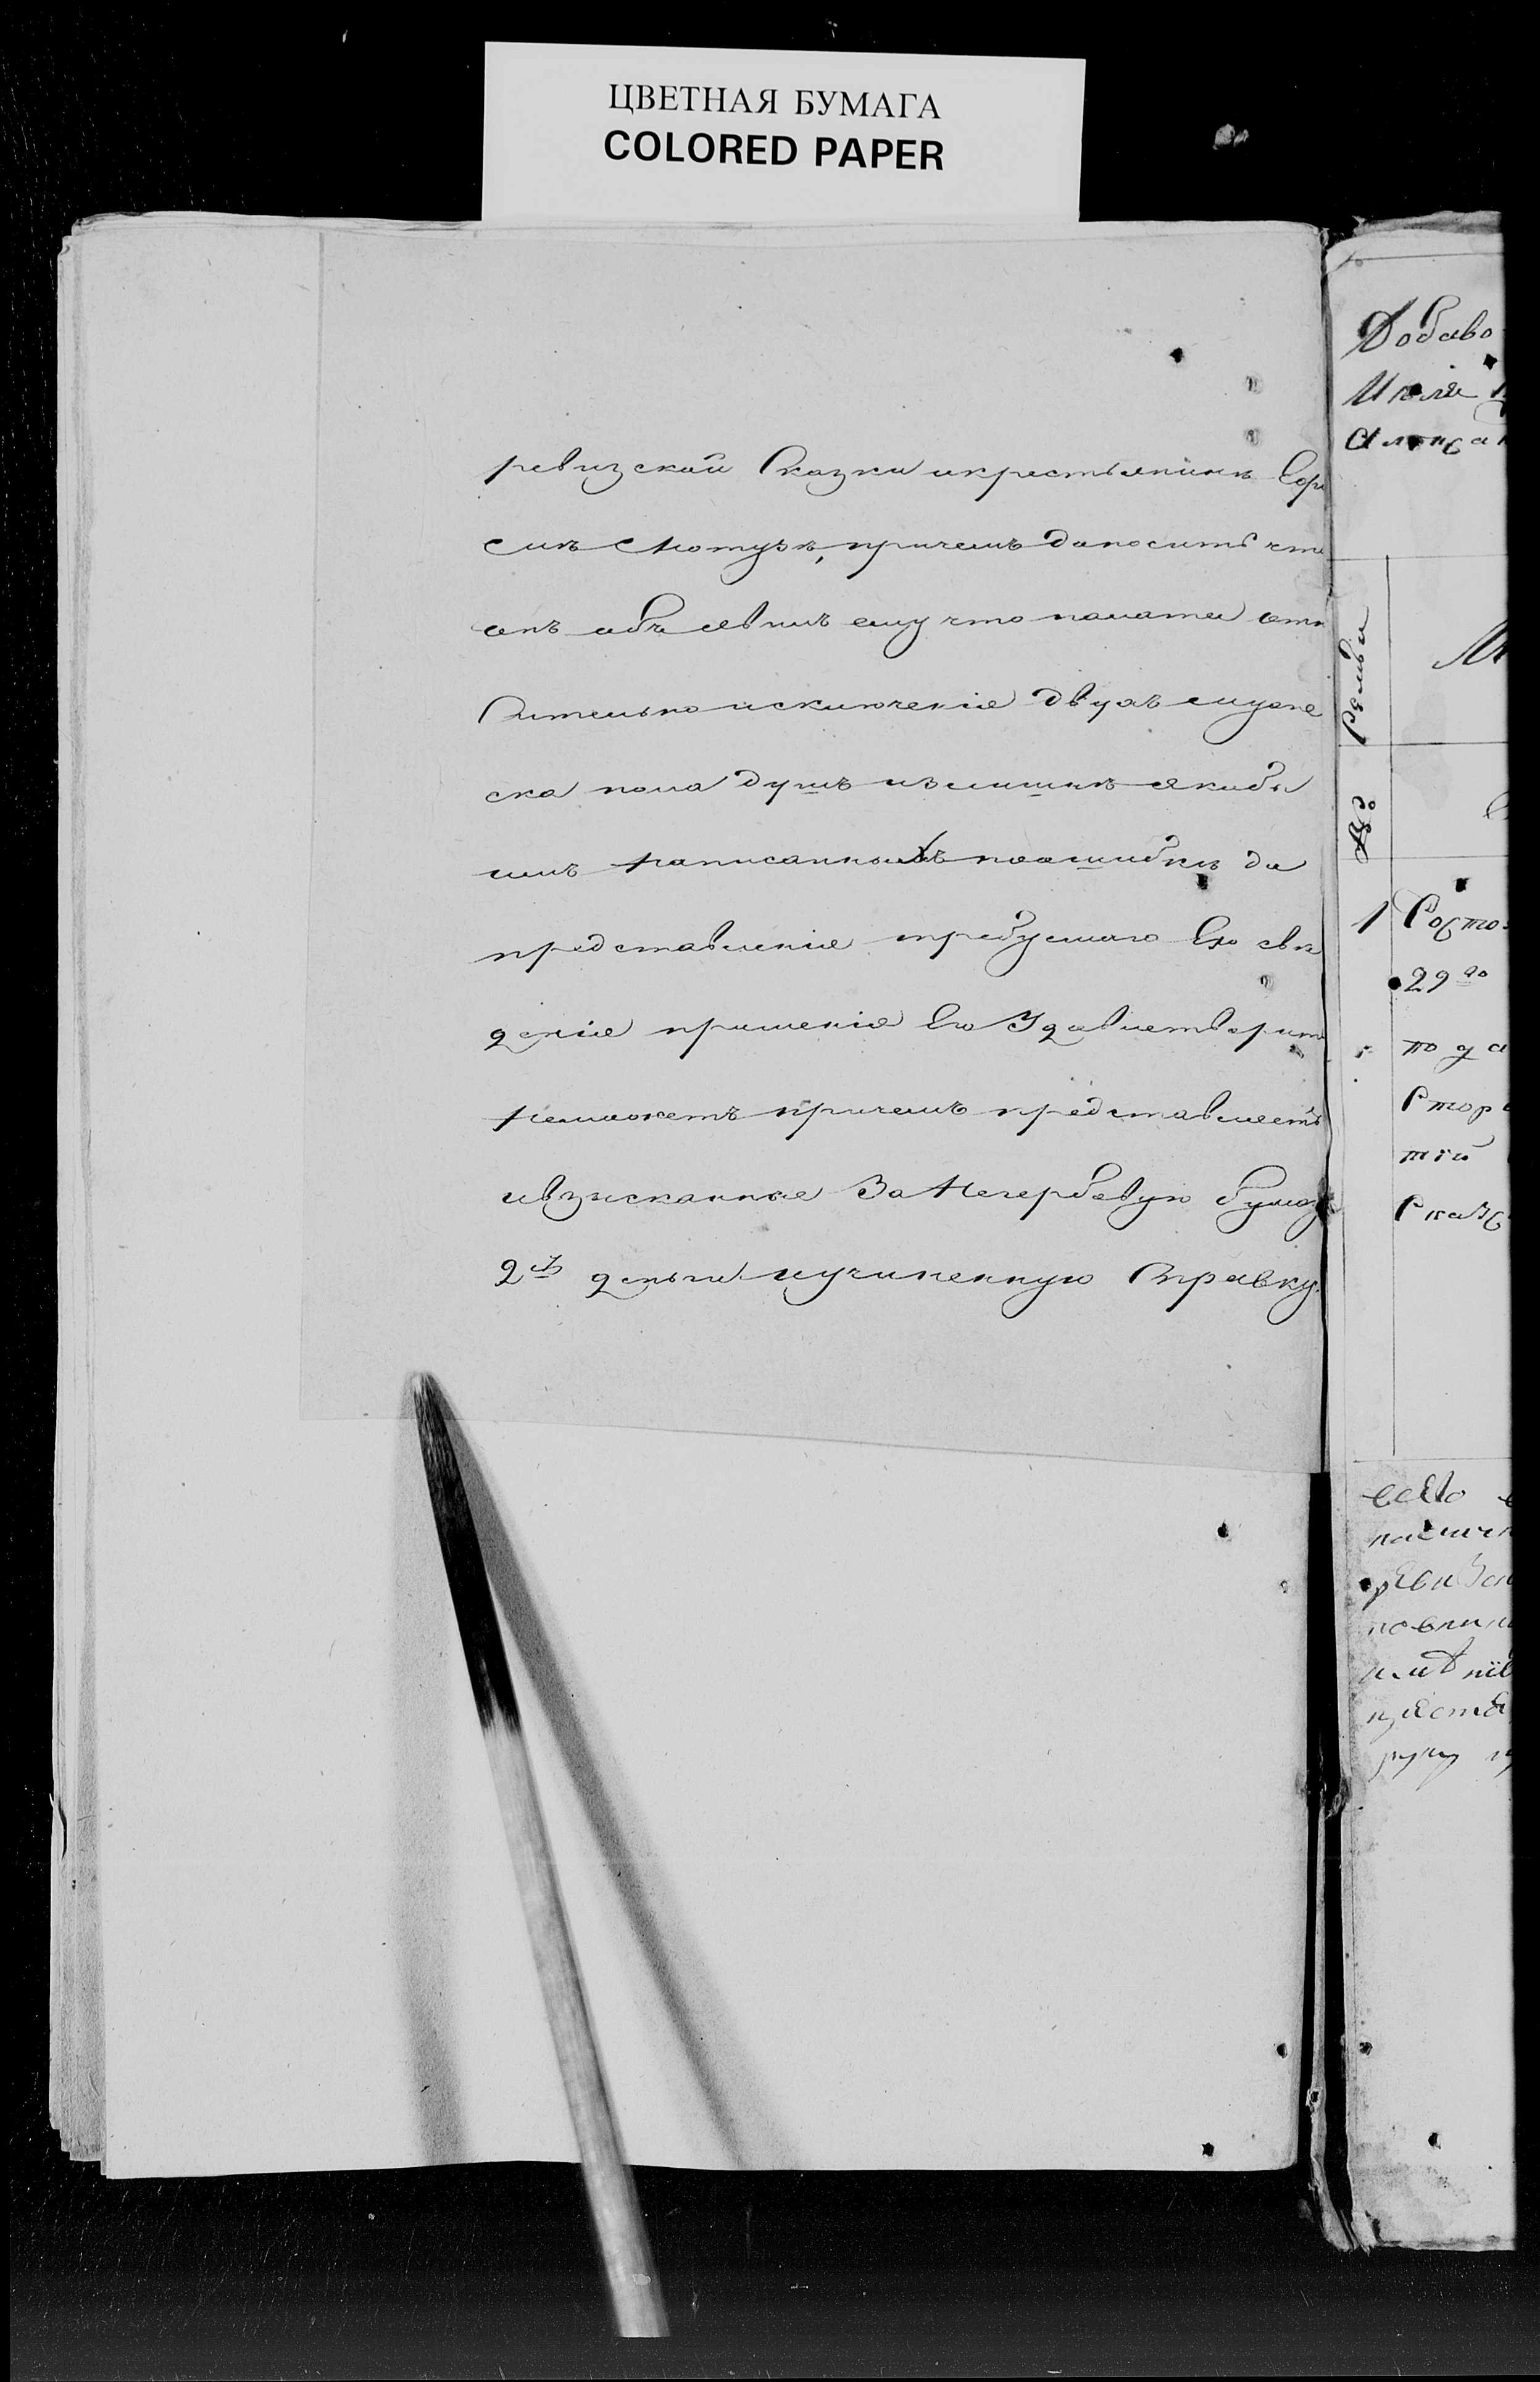 ЦВЕТНАЯ БУМАГА
COLORED PAPER
ревизской Сказки икрестьянинъ
причемъ доноситъ что
онъ объявилъ ему что палата
сительно исключенія двухъ мужe
ска пола душъ излишнѣ якобы
имъ написанныхъ поошибкѣ до
представленія требуемаго Ею свѣ
денія прошенія Его Удовлетворить
неможетъ причемъ представляетъ
ивзысканные За Негербовую бумагу
деньги иучиненную Справку.
Добаво
Июля
Алекса
Семьи
№
1 Состо
29го
пода
Стор
тій
Сказ
всего
ревизс
руку